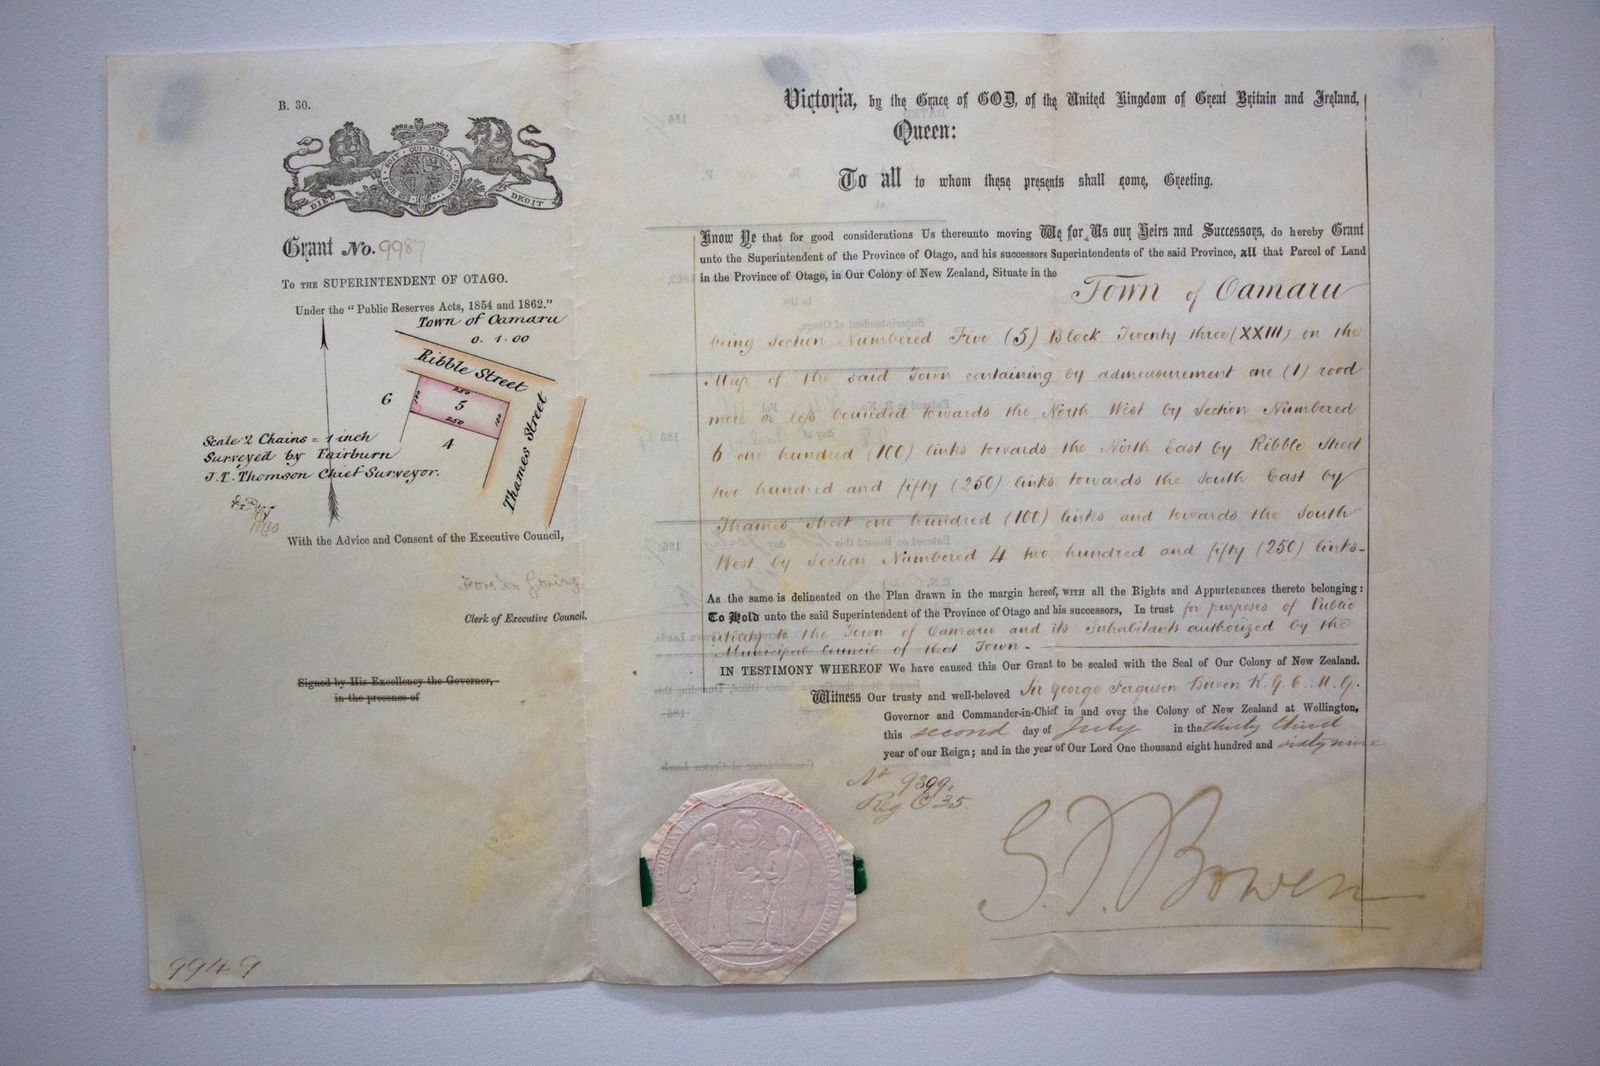 B. 30.
HONI SOIT QUI MAL Y PENSE
DIEU DROIT
Grant No. 9987
To the SUPERINTENDENT OF OTAGO.
Under the "Public Reserves Acts, 1854 and 1862."
Town of Oamaru
0. 1. 00
Ribble Street
250
6 100 5 100
250
4
Thames Street
Scale 2 Chains = 1 inch
Surveyed by Fairburn
J.T. Thomson Chief Surveyor.
With the Advice and Consent of the Executive Council,
Clerk of Executive Council.
Signed by His Excellency the Governor,
in the presence of
9949
Victoria, by the Grace of GOD, of the United Kingdom of Great Britain and Ireland,
Queen:
To all to whom these presents shall come, Greeting.
Know Ye that for good considerations Us thereunto moving We for Us our Heirs and Successors, do hereby Grant
unto the Superintendent of the Province of Otago, and his successors Superintendents of the said Province, all that Parcel of Land
in the Province of Otago, in Our Colony of New Zealand, Situate in the
Town of Oamaru
being Section Numbered Five (5) Block Twenty three (XXIII) on the
Map of the said Town containing by admeasurement one (1) rood
more or less bounded towards the North West by Section Numbered
6 one hundred (100) links towards the North East by Ribble Street
two hundred and fifty (250) links towards the South East by
Thames Street one hundred (100) links and towards the South
West by Section Numbered 4 two hundred and fifty (250) links-
As the same is delineated on the Plan drawn in the margin hereof, with all the Rights and Appurtenances thereto belonging:
To Hold unto the said Superintendent of the Province of Otago and his successors, In trust for purposes of Public
utility to the Town of Oamaru and its Inhabitants authorized by the
Municipal Council of that Town -
IN TESTIMONY WHEREOF We have caused this Our Grant to be sealed with the Seal of Our Colony of New Zealand.
Witness Our trusty and well-beloved Sir George Ferguson Bowen K. G. C. M. G.
Governor and Commander-in-Chief in and over the Colony of New Zealand at Wellington,
this second day of July in the thirty third
year of our Reign; and in the year of Our Lord One thousand eight hundred and sixty nine
No 9899.
Reg O.35.
G. F. Bowen